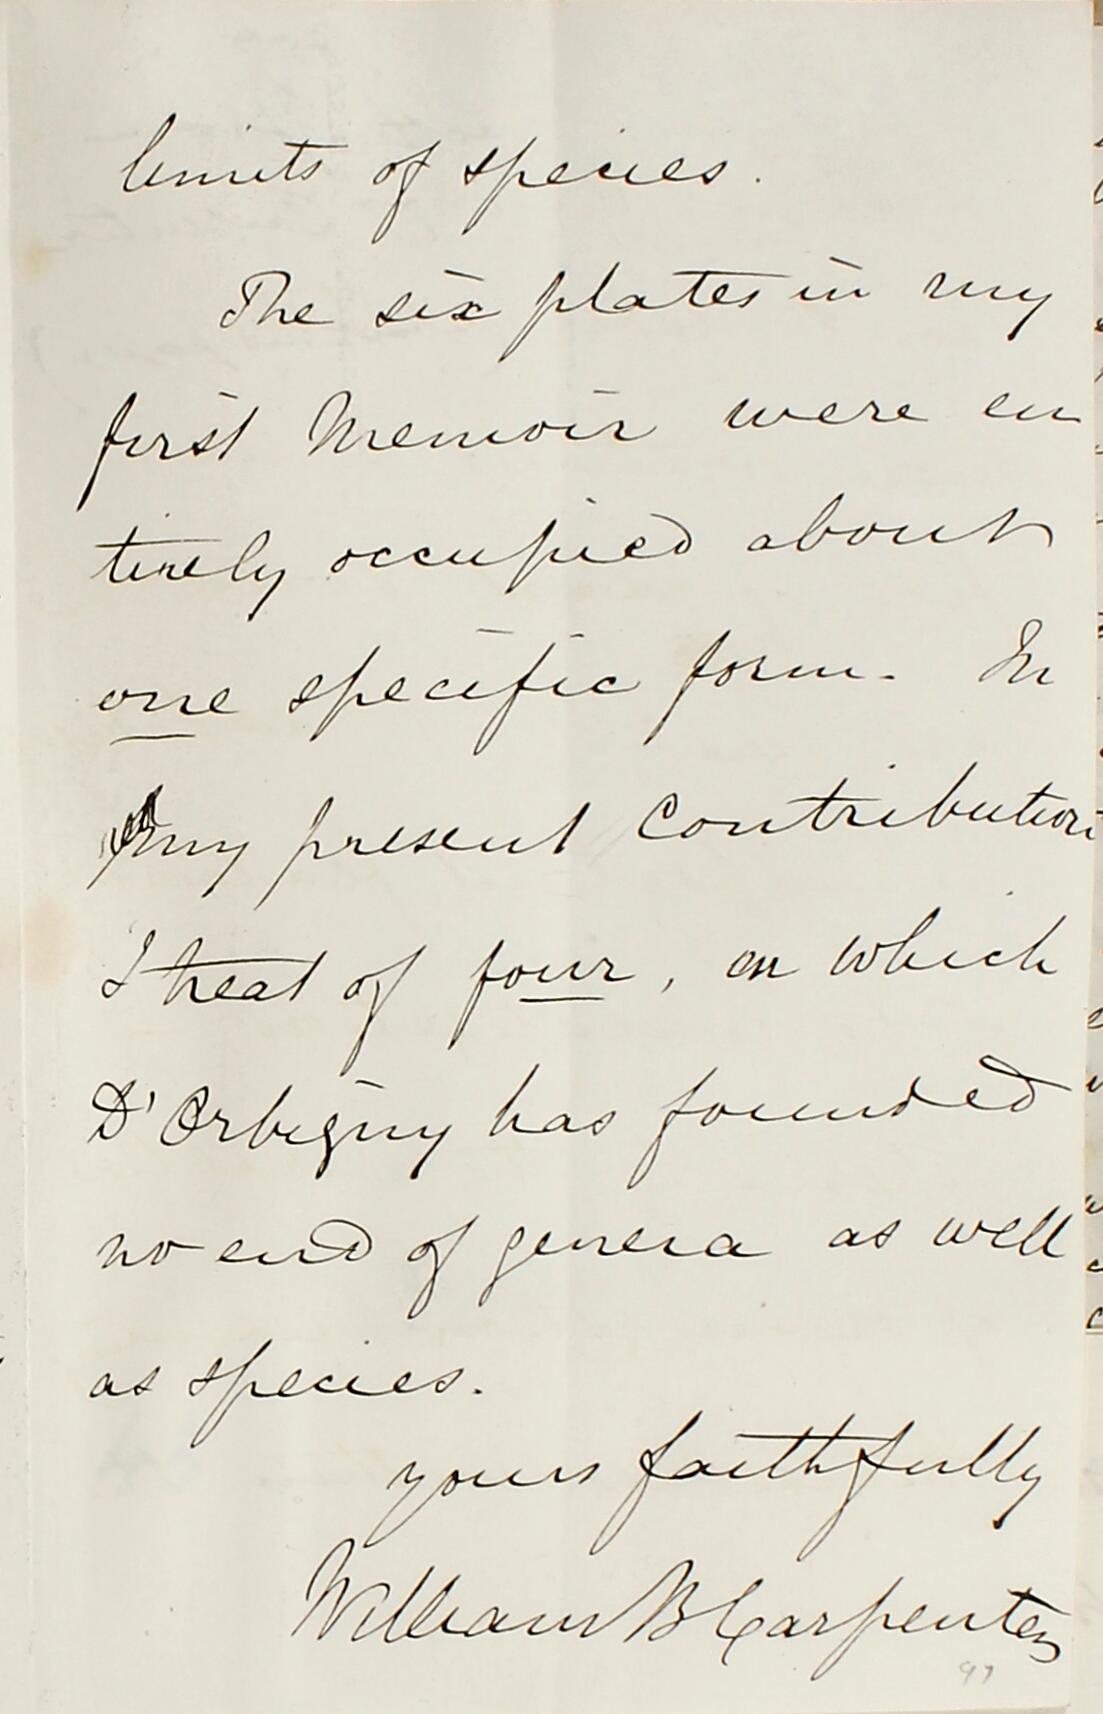 limits of species.
The six plates in my
first Memoir were en
tirely occupied about
one specific form. In
my present Contribution
I treat of four, on which
D'Orbigny has founded
no end of genera as well
as species.
yours faithfully
William B Carpenter
97